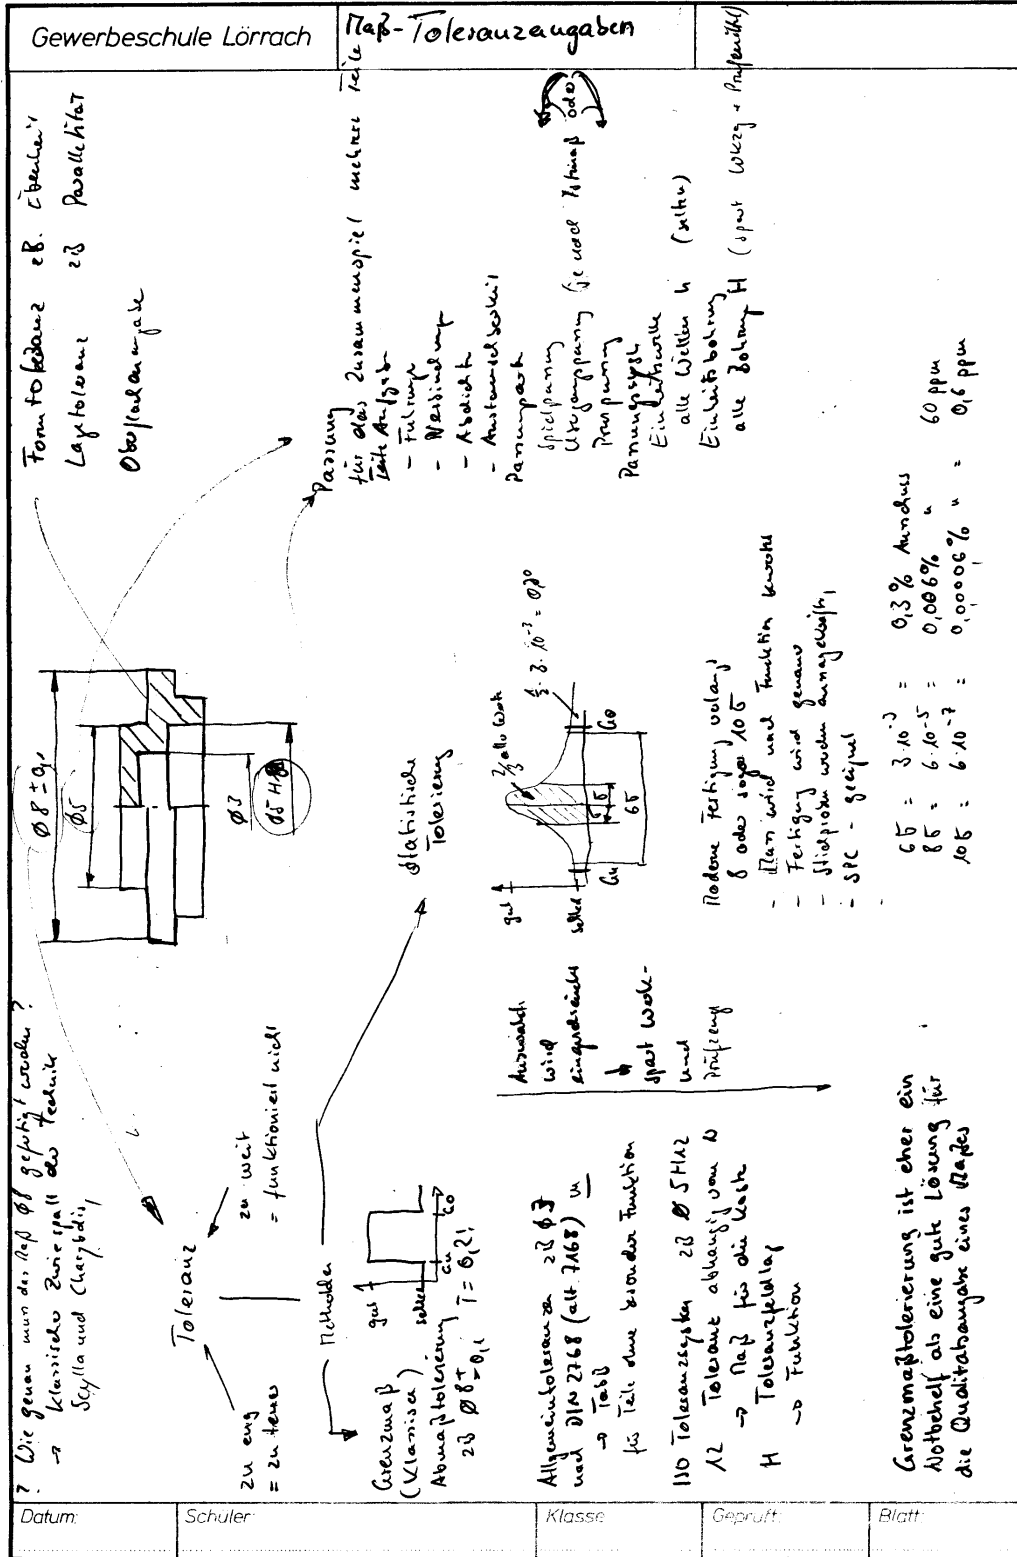 Gewerbeschule Lörrach
Maß-Toleranzangaben
? Wie genau muss das Maß Ø8 gefertigt werden?
→ klassischer Zwiespall der Technik
Scylla und Charybdis,
Toleranz
zu eng
= zu teuer
zu weit
= funktioniert nicht
Methoden
Ø8 ±0,1
Ø5
Ø3
Ø5 H
Formtoleranz zB. Ebenheit
Lagetoleranz zB Parallelität
Oberflächenangabe
Grenzmaß
(Klassisch)
Abmaßtolerierung
zB Ø8 ± 0,1
T = 0,2!
gut
selten
Gu
Go
Allgemeintoleranzen zB Ø3
nach DIN 2768 (alt 7168) m
→ TabB
für Teile ohne besondere Funktion
ISO Toleranzsystem zB Ø 5H12
12 Toleranz abhängig von D
→ Maß für die Kosten
H Toleranzfeldlage
→ Funktion
Grenzmaßtolerierung ist eher ein
Notbehelf als eine gute Lösung für
die Qualitätsangabe eines Maßes
Auswahl
wird
eingeschränkt
spart Werk-
und
Prüfzeug
Statistische
Tolerierung
gut
selten
2/3 aller Werte
3·10⁻³ =
Gu
Go
σ
6σ
Moderne Fertigung verlangt
8 oder sogar 10σ
- Man wird nach Funktion bewertet
- Fertigung wird genauer
- Stichproben werden aussagekräftig
- SPC - geeignet
6σ = 3·10⁻³ = 0,3% Ausschuss
8σ = 6·10⁻⁵ = 0,006% " 60 ppm
10σ = 6·10⁻⁷ = 0,00006% " = 0,6 ppm
Passung
für das Zusammenspiel mehrerer Teile
Teile Aufgabe
- Führung
- Verbindung
- Abdichten
- Austauschbarkeit
Passungsart
Spielpassung
Übergangspassung (je nach Istmaß oder
Presspassung
Passungssyst
Einheitswelle
alle Wellen h (selten)
Einheitsbohrung
alle Bohrung H (spart WKZg + Prüfmittel)
Datum:
Schüler:
Klasse
Geprüft:
Blatt: